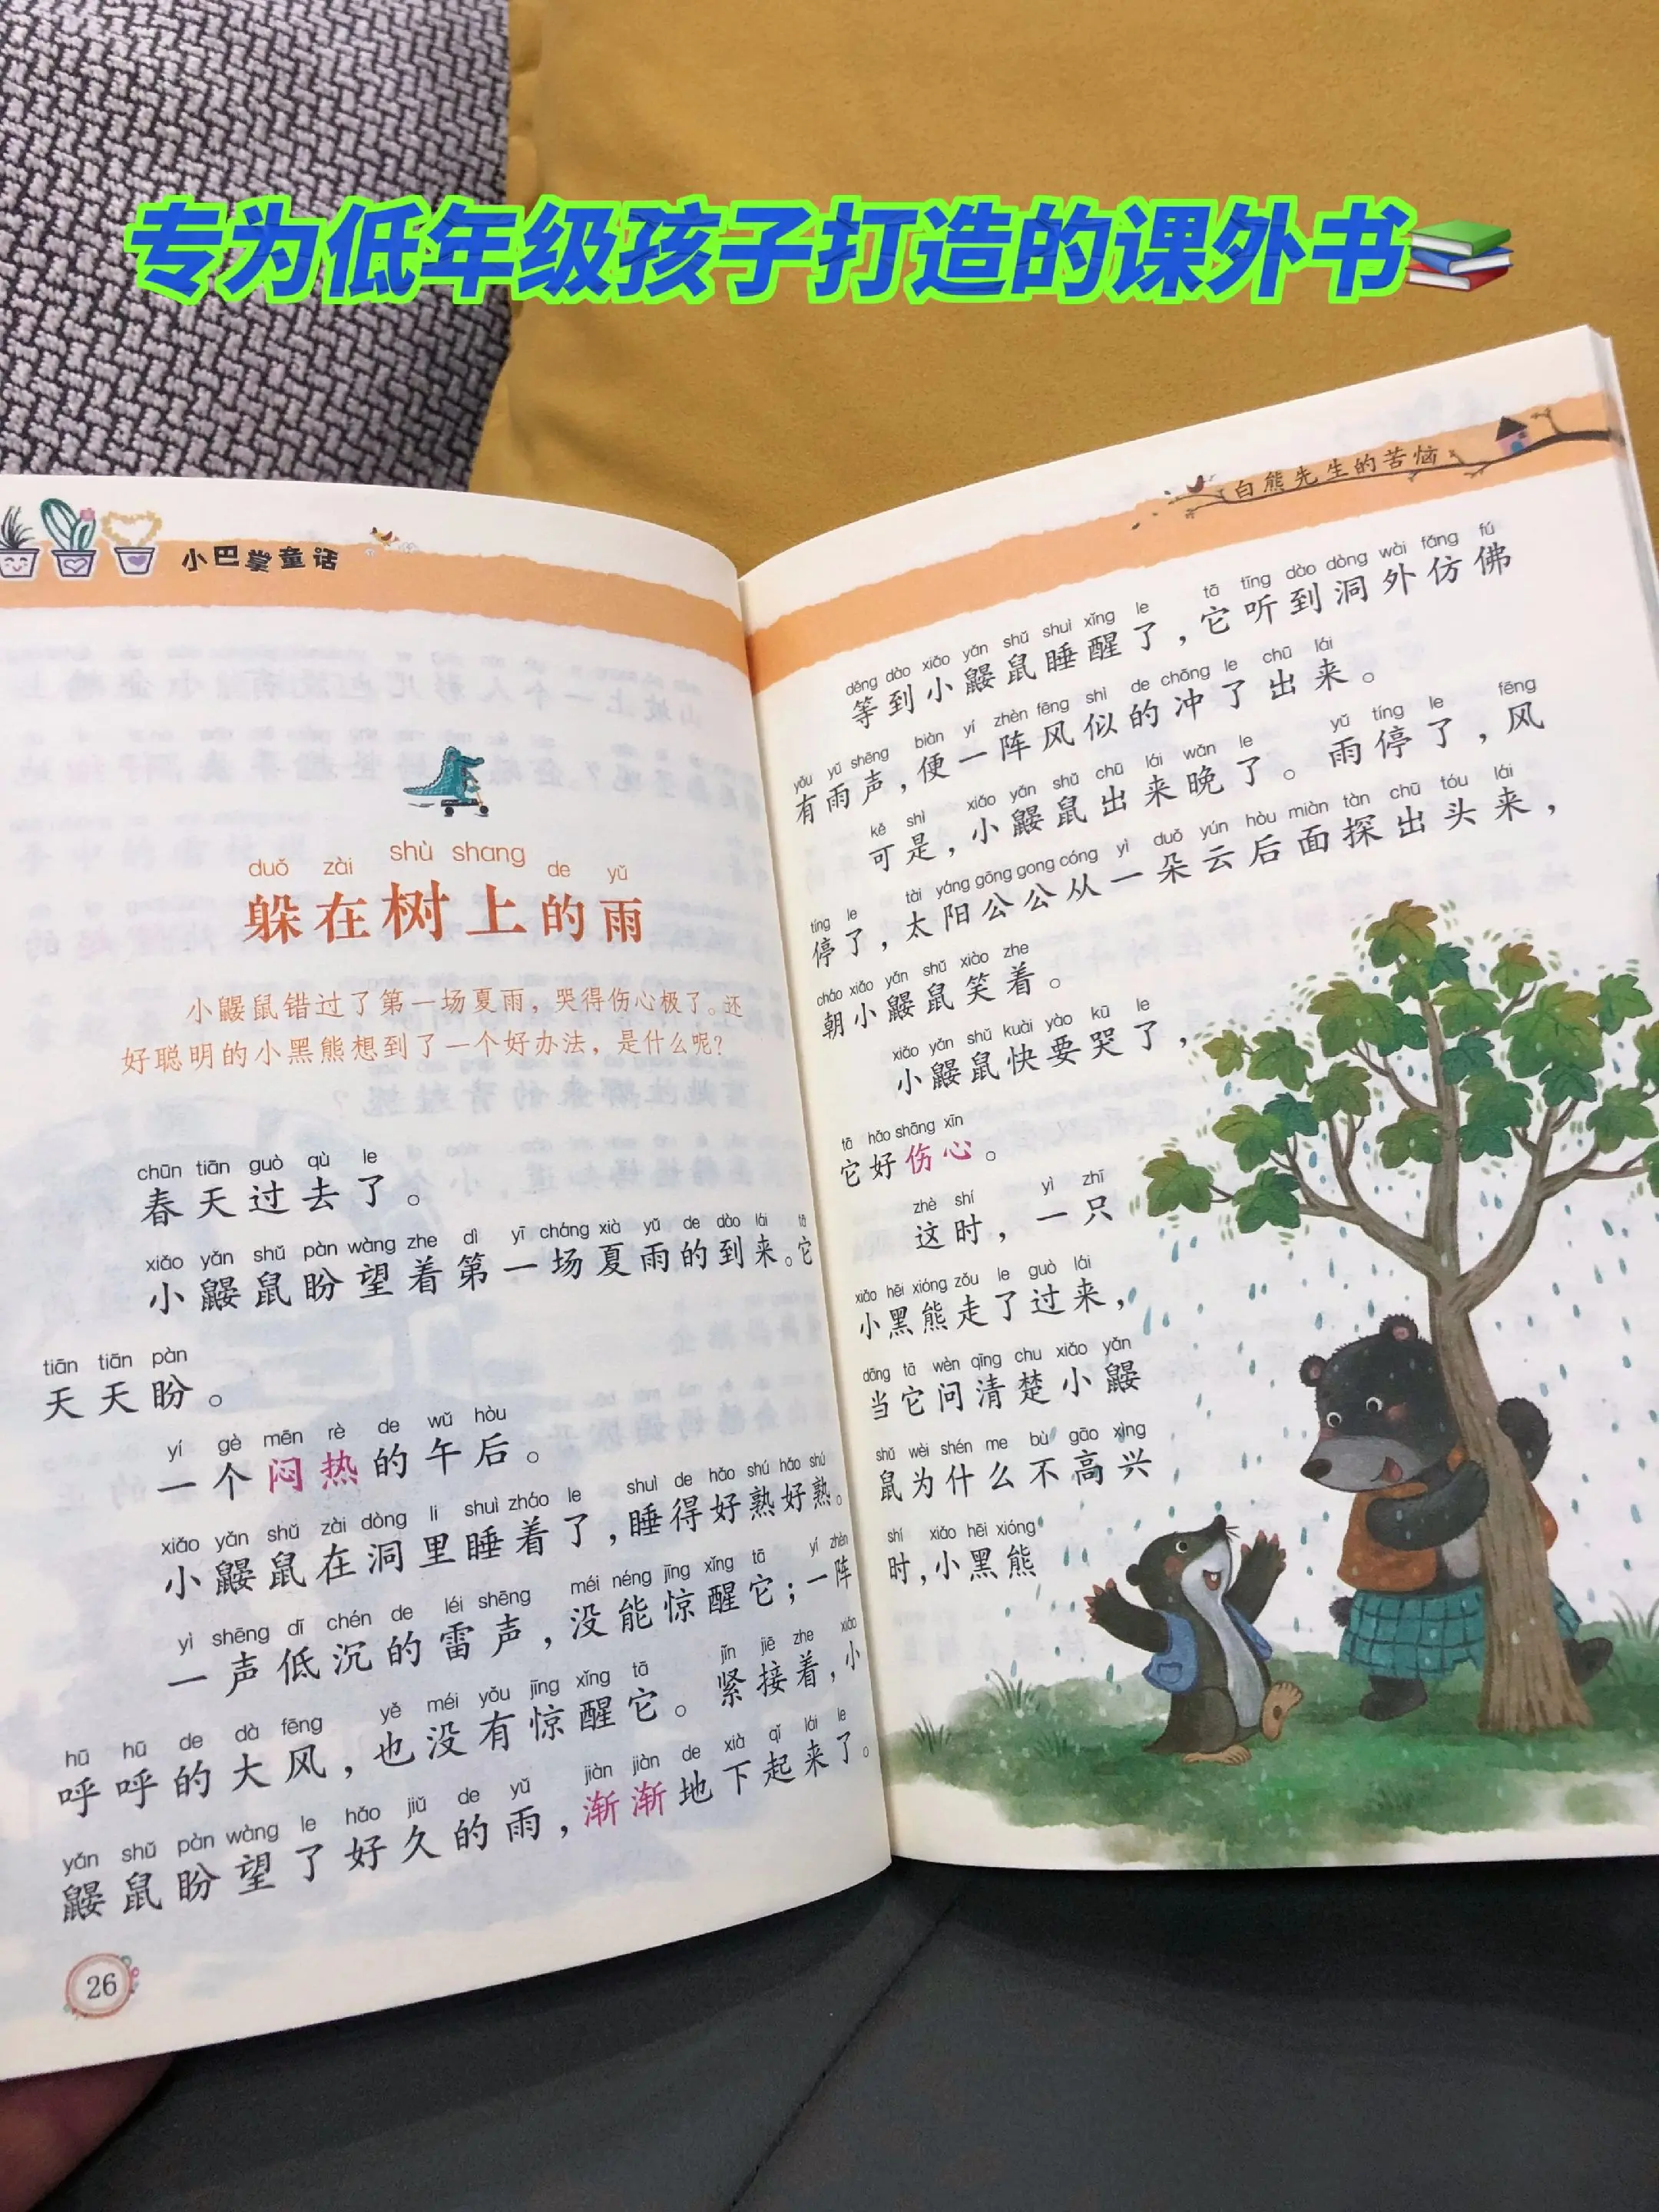 专为低年级孩子打造的课外书
小巴掌童话
duǒ zài shù shang de yǔ
躲在树上的雨
小鼹鼠错过了第一场夏雨，哭得伤心极了。还
好聪明的小黑熊想到了一个好办法，是什么呢？
chūn tiān guò qù le
春天过去了。
xiǎo yǎn shǔ pàn wàng zhe dì yī cháng xià yǔ de dào lái tā
小鼹鼠盼望着第一场夏雨的到来。它
tiān tiān pàn
天天盼。
yí gè mēn rè de wǔ hòu
一个闷热的午后。
xiǎo yǎn shǔ zài dòng li shuì zháo le shuì de hǎo shú hǎo shú
小鼹鼠在洞里睡着了，睡得好熟好熟。
yì shēng dī chén de léi shēng méi néng jīng xǐng tā yí zhèn
一声低沉的雷声，没能惊醒它；一阵
hū hū de dà fēng yě méi yǒu jīng xǐng tā jǐn jiē zhe xiǎo
呼呼的大风，也没有惊醒它。紧接着，小
yǎn shǔ pàn wàng le hǎo jiǔ de yǔ jiàn jiàn de xià qǐ lái le
鼹鼠盼望了好久的雨，渐渐地下起来了。
26
白熊先生的苦恼
děng dào xiǎo yǎn shǔ shuì xǐng le tā tīng dào dòng wài fǎng fú
等到小鼹鼠睡醒了，它听到洞外仿佛
yǒu yǔ shēng biàn yí zhèn fēng shì de chōng le chū lái
有雨声，便一阵风似的冲了出来。
kě shì xiǎo yǎn shǔ chū lái wǎn le yǔ tíng le fēng
可是，小鼹鼠出来晚了。雨停了，风
tíng le tài yáng gōng gong cóng yì duǒ yún hòu miàn tàn chū tóu lái
停了，太阳公公从一朵云后面探出头来，
cháo xiǎo yǎn shǔ xiào zhe
朝小鼹鼠笑着。
xiǎo yǎn shǔ kuài yào kū le
小鼹鼠快要哭了，
tā hǎo shāng xīn
它好伤心。
zhè shí yì zhī
这时，一只
xiǎo hēi xióng zǒu le guò lái
小黑熊走了过来，
dāng tā wèn qīng chu xiǎo yǎn
当它问清楚小鼹
shǔ wèi shén me bù gāo xìng
鼠为什么不高兴
shí xiǎo hēi xióng
时，小黑熊